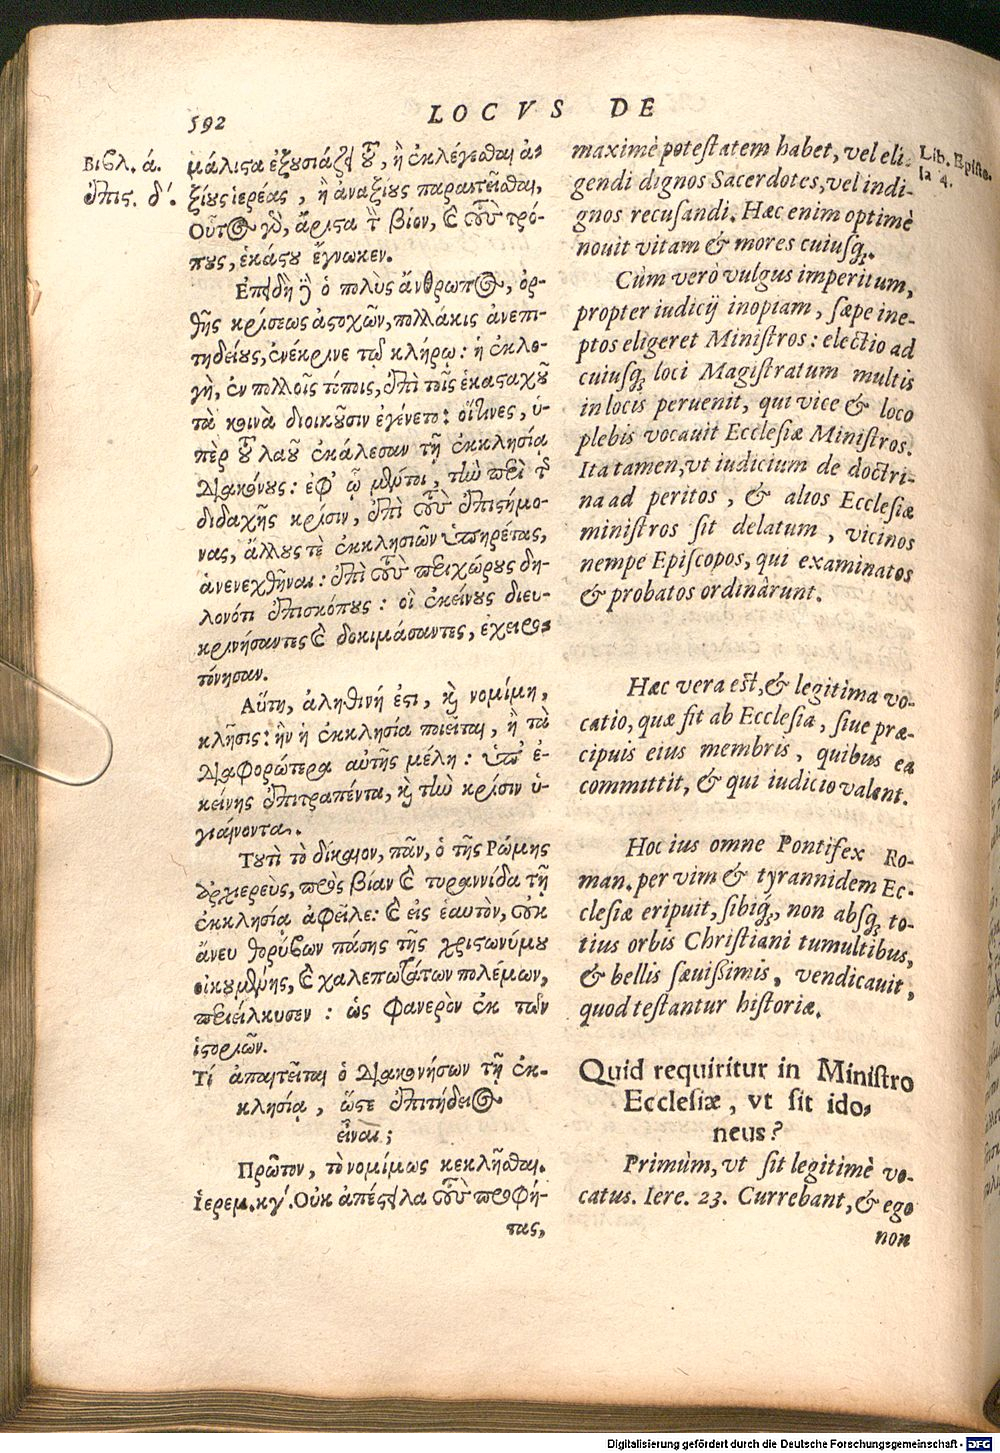 592
LOCVS DE
Βιβλ. ά.
ἐπις. δ΄.
μάλιςα ἐξουσιάζει τοῦ, ἢ ἐκλέγεσθαι ἀ-
ξίους ἱερέας, ἢ ἀναξίους παραιτεῖσθαι,
Οὗτος γὸ, ἄριςα τ̃ βίον, καὶ τοὺς τρό-
πους, ἑκάςου ἔγνωκεν.
Ἐπειδὴ ἢ ὁ πολὺς ἄνθρωπος, ὀρ-
θῆς κρίσεως ἀςοχῶν, πολλάκις ἀνεπι-
τηδείους, ἐνέκρινε τῷ κλήρῳ: ἡ ἐκλο-
γὴ, ἐν πολλοῖς τόποις, ἐπὶ τοῖς ἑκαςαχοῦ
τὰ κοινὰ διοικοῦσιν ἐγένετο: οἵτινες, ὑ-
πὲρ τοῦ λαοῦ ἐκάλεσαν τῇ ἐκκλησίᾳ
διακόνους: ἐφ' ᾧ μέντοι, τὴν περὶ τ̃
διδαχῆς κρίσιν, ἐπὶ τοὺς ἐπιςήμο-
νας, ἄλλους τὲ ἐκκλησιῶν ὑπηρέτας,
ἀνενεχθῆναι: ἐπὶ τοὺς περιχώρους δη-
λονότι ἐπισκόπους: οἳ ἐκείνους διευ-
κρινήσαντες καὶ δοκιμάσαντες, ἐχειρο-
τόνησαν.
Αὕτη, ἀληθινή ἐςι, καὶ νομίμη,
κλῆσις: ἣν ἡ ἐκκλησία ποιεῖται, ἢ τὰ
διαφορώτερα αὐτῆς μέλη: ὑπ' ἐ-
κείνης ἐπιτραπέντα, καὶ τὴν κρίσιν ὑ-
γιαίνοντα.
Τουτὶ τὸ δίκαιον, πᾶν, ὁ τῆς Ρώμης
ἀρχιερεὺς, πρὸς βίαν καὶ τυραννίδα τῇ
ἐκκλησίᾳ ἀφεῖλε: καὶ εἰς ἑαυτὸν, οὐκ
ἄνευ θορύβων πάσης τῆς χριςωνύμου
οἰκουμένης, καὶ χαλεπωτάτων πολέμων,
περιείλκυσεν: ὡς φανερὸν ἐκ τῶν
ἱςοριῶν.
Τί ἀπαιτεῖται ὁ διακονήσων τῇ ἐκ-
κλησίᾳ, ὥςε ἐπιτήδειος
εἶναι;
Πρῶτον, τὸ νομίμως κεκλῆσθαι.
Ἱερεμ. κγ΄. Οὐκ ἀπέςειλα τοὺς προφή-
τας,
maximè potestatem habet, vel eli-
gendi dignos Sacerdotes, vel indi-
gnos recusandi. Hæc enim optimè
nouit vitam & mores cuiusq́.
Cùm verò vulgus imperitum,
propter iudicij inopiam, sæpe ine-
ptos eligeret Ministros: electio ad
cuiusq́ loci Magistratum multis
in locis peruenit, qui vice & loco
plebis vocauit Ecclesiæ Ministros.
Ita tamen, vt iudicium de doctri-
na ad peritos, & alios Ecclesiæ
ministros sit delatum, vicinos
nempe Episcopos, qui examinatos
& probatos ordinârunt.
Hæc vera est, & legitima vo-
catio, quæ fit ab Ecclesia, siue præ-
cipuis eius membris, quibus ea
committit, & qui iudicio valent.
Hoc ius omne Pontifex Ro-
man. per vim & tyrannidem Ec-
clesiæ eripuit, sibiq́, non absq́ to-
tius orbis Christiani tumultibus,
& bellis sæuissimis, vendicauit,
quod testantur historiæ.
Quid requiritur in Ministro
Ecclesiæ, vt sit ido-
neus?
Primùm, vt sit legitimè vo-
catus. Iere. 23. Currebant, & ego
non
Lib. Episto-
la 4.
Digitalisierung gefördert durch die Deutsche Forschungsgemeinschaft - DFG